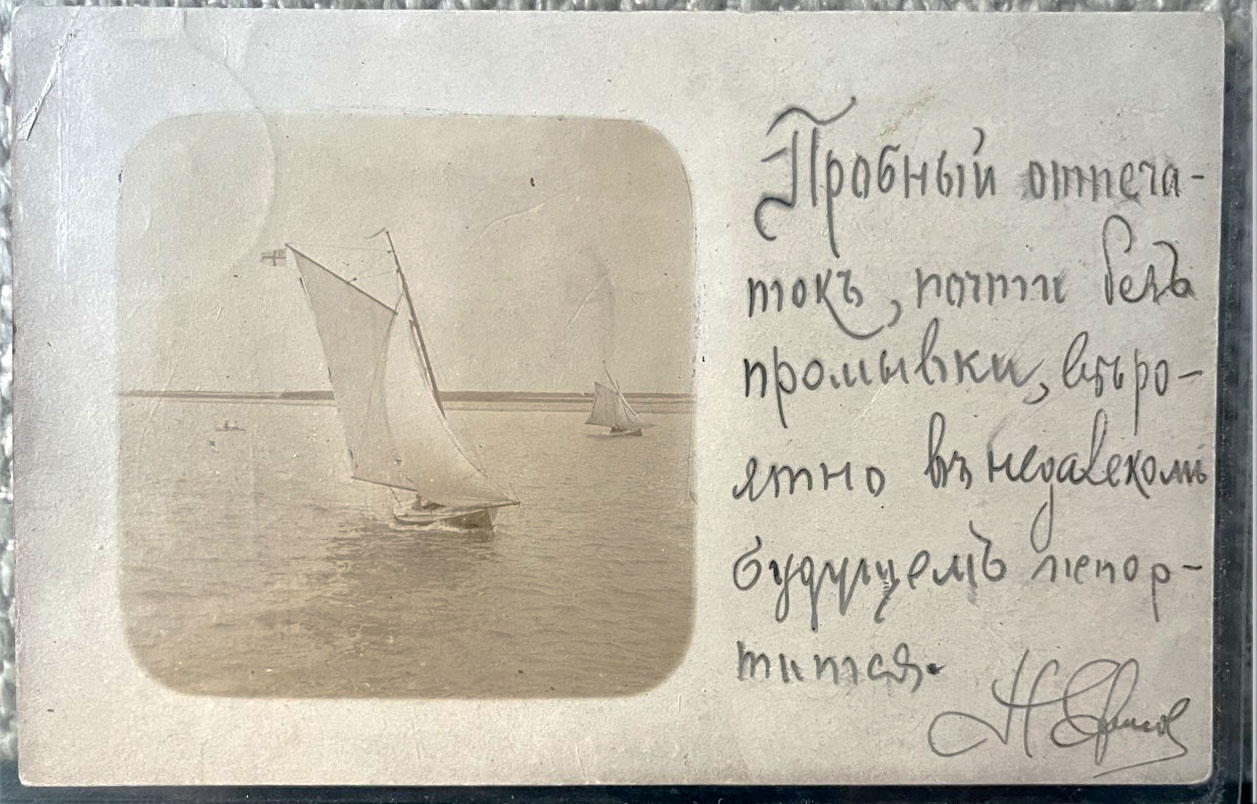 Пробный отпеча-
токъ, почти безъ
промывки, вѣро-
ятно въ недалекомъ
будущемъ испор-
тится.
Н